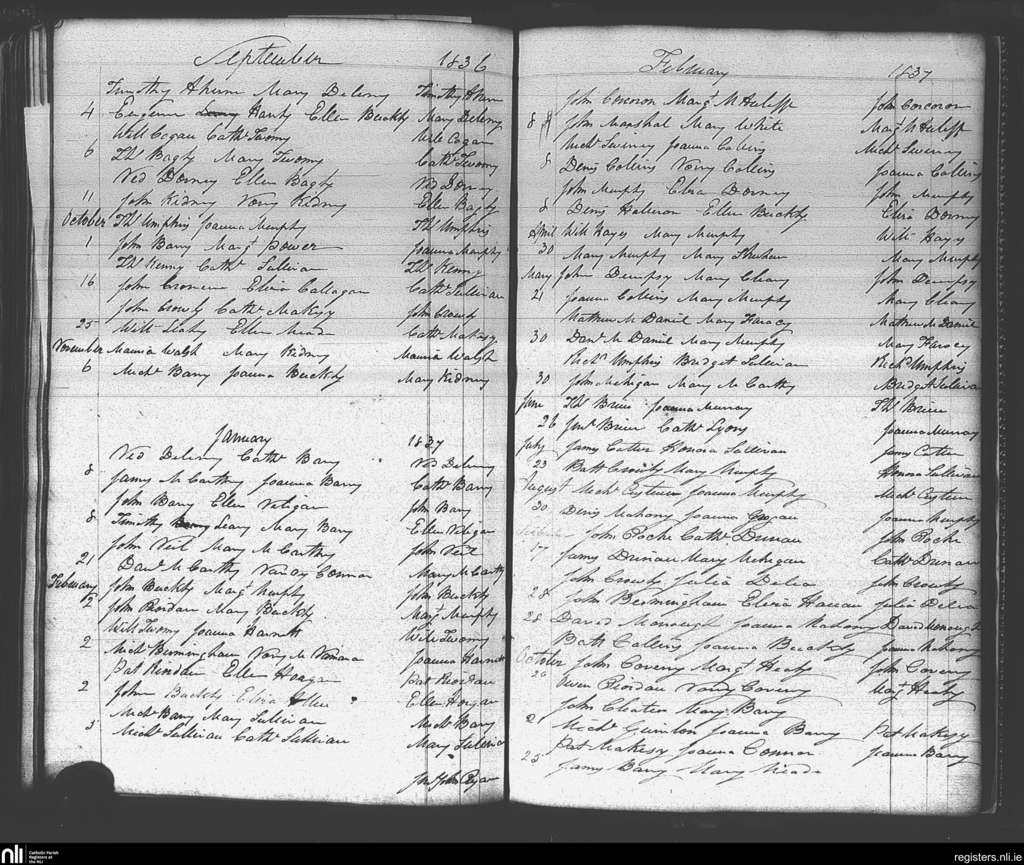 September 1836
Timothy Ahern Mary Deleny Timothy Ahern
4 Eugene Hanly Ellen Buckly Mary Deleny
Will Cogan Cathn Twomy Will Cogan
6 Ths Bagly Mary Twomy Cathn Twomy
Ned Dorney Ellen Bagly Ned Dorney
11 John Kidney Nory Kidney Ellen Bagly
October Ths Umphris Joanna Murphy Ths Umphris
1 John Barry Margt Power Joanna Murphy
Ths Kenny Cathn Sullivan Ths Kenny
16 John Cronin Eliza Callagan Cathn Sullivan
John Crowly Cathn Makesy John Crowly
25 Will Ellen Meade Cathn Makesy
November Mauria Walsh Mary Kidney Mauria Walsh
6 Michl Barry Joanna Buckly Mary Kidney
January 1837
Ned Deleny Cathn Barry Ned Deleny
8 Jamy McCarthy Joanna Barry Cathn Barry
John Barry Ellen Neligan John Barry
8 Timothy Leary Mary Barry Ellen Neligan
John Neil Mary McCarthy John Neil
21 Danl McCarthy Nancy Connor Mary McCarthy
February John Buckly Margt Murphy John Buckly
2 John Riordan Mary Buckly Margt Murphy
Will Twomy Joanna Harnett Will Twomy
2 Michl Birmingham Nory McNamara Joanna Harnett
Pat Riordan Ellen Horgan Pat Riordan
2 John Buckly Eliza Ellen Horgan
Michl Barry Mary Sullivan Michl Barry
3 Michl Sullivan Cathn Sullivan Mary Sullivan
John Ryan
February 1837
John Corcoran Margt John Corcoran
8 John Marshal Mary White Margt
Michl Sweeney Joanna Collins Michl Sweeney
8 Denis Collins Nory Collins Joanna Collins
John Murphy Eliza Dorney John Murphy
8 Denis Ellen Buckly Eliza Dorney
April Will Hayes Mary Murphy Will Hayes
30 Mary Murphy Mary Mary Murphy
May John Dempsy Mary Cleary John Dempsy
21 Joanna Collins Mary Murphy Mary Cleary
Mathew McDaniel Mary Mathew McDaniel
30 Danl McDaniel Mary Murphy Mary
Richd Umphris Bridget Sullivan Richd Umphris
30 John Mehigan Mary McCarthy Bridget Sullivan
June Ths Brien Joanna Murray Ths Brien
26 Brien Cathn Lyons Joanna Murray
July Jamy Carter Honora Sullivan Jamy
23 Batt Crowly Mary Murphy Honora Sullivan
August Michl Joanna Murphy Michl
20 Denis Mahony Joanna Joanna Murphy
John Roche Cathn Dunau John Roche
17 Jamy Dunau Mary Mehegan Cathn Dunau
John Crowly Julia Delea John Crowly
28 John Bermingham Eliza Julia Delea
28 David Monough Joanna Mahony David Monough
Batt Collins Joanna Buckly Joanna Mahony
October John Coveny Margt Healy John Coveny
20 Owen Riordan Nancy Coveny Margt Healy
John Mary Barry
21 Michl Quinlan Joanna Barry Pat Makesy
Pat Makesy Joanna Connor Joanna Barry
25 Jamy Barry Mary Meade
nli
Catholic Parish
Registers at
the NLI
registers.nli.ie